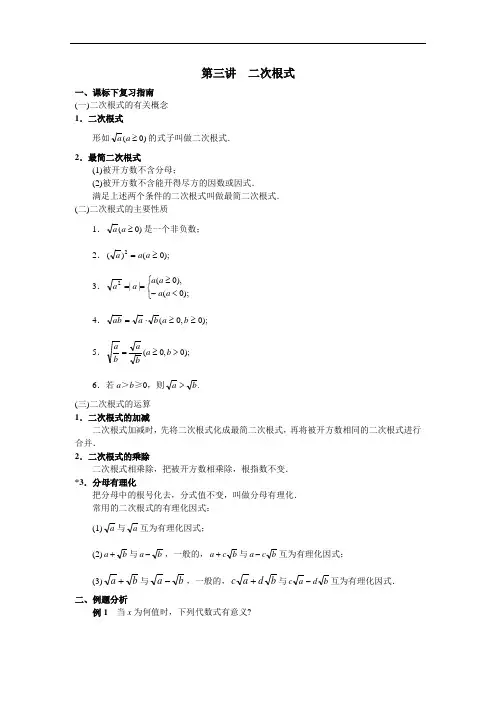 第三讲 二次根式
一、课标下复习指南
(一)二次根式的有关概念
1．二次根式
形如√a(a≥0)的式子叫做二次根式．
2．最简二次根式
(1)被开方数不含分母；
(2)被开方数不含能开得尽方的因数或因式．
满足上述两个条件的二次根式叫做最简二次根式．
(二)二次根式的主要性质
1．√a(a≥0)是一个非负数；
2．(√a)²=a(a≥0);
3．√a²=|a|={a(a≥0), −a(a<0);
4．√ab=√a·√b(a≥0,b≥0);
5．√(a/b)=√a/√b(a≥0,b>0);
6．若a＞b≥0，则√a>√b.
(三)二次根式的运算
1．二次根式的加减
二次根式加减时，先将二次根式化成最简二次根式，再将被开方数相同的二次根式进行
合并．
2．二次根式的乘除
二次根式相乘除，把被开方数相乘除，根指数不变．
*3．分母有理化
把分母中的根号化去，分式值不变，叫做分母有理化．
常用的二次根式的有理化因式：
(1)√a与√a互为有理化因式；
(2)a+√b与a−√b，一般的，a+c√b与a−c√b互为有理化因式；
(3)√a+√b与√a−√b，一般的，c√a+d√b与c√a−d√b互为有理化因式．
二、例题分析
例1 当x为何值时，下列代数式有意义?